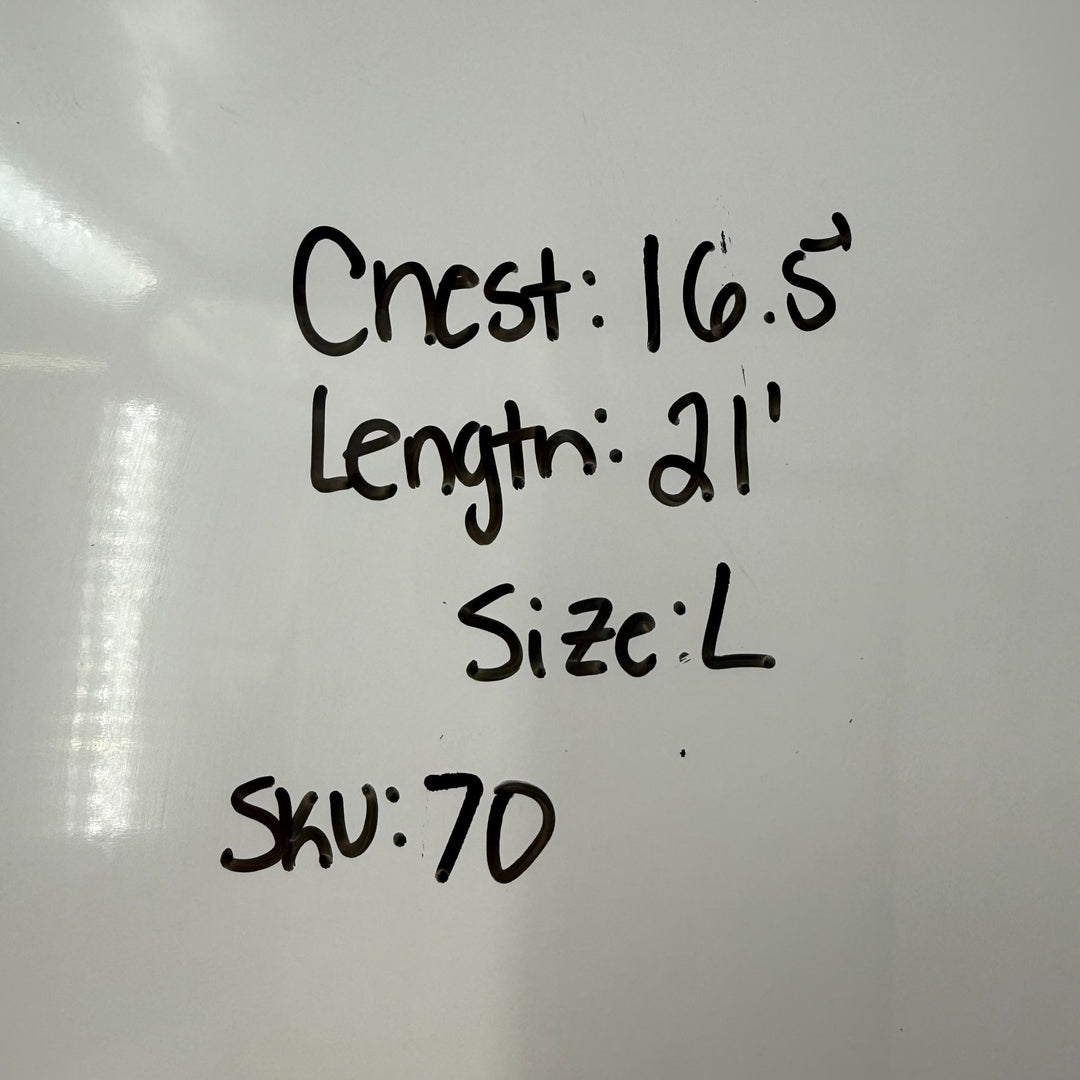 Chest: 16.5'
Length: 21'
Size: L
SKU: 70